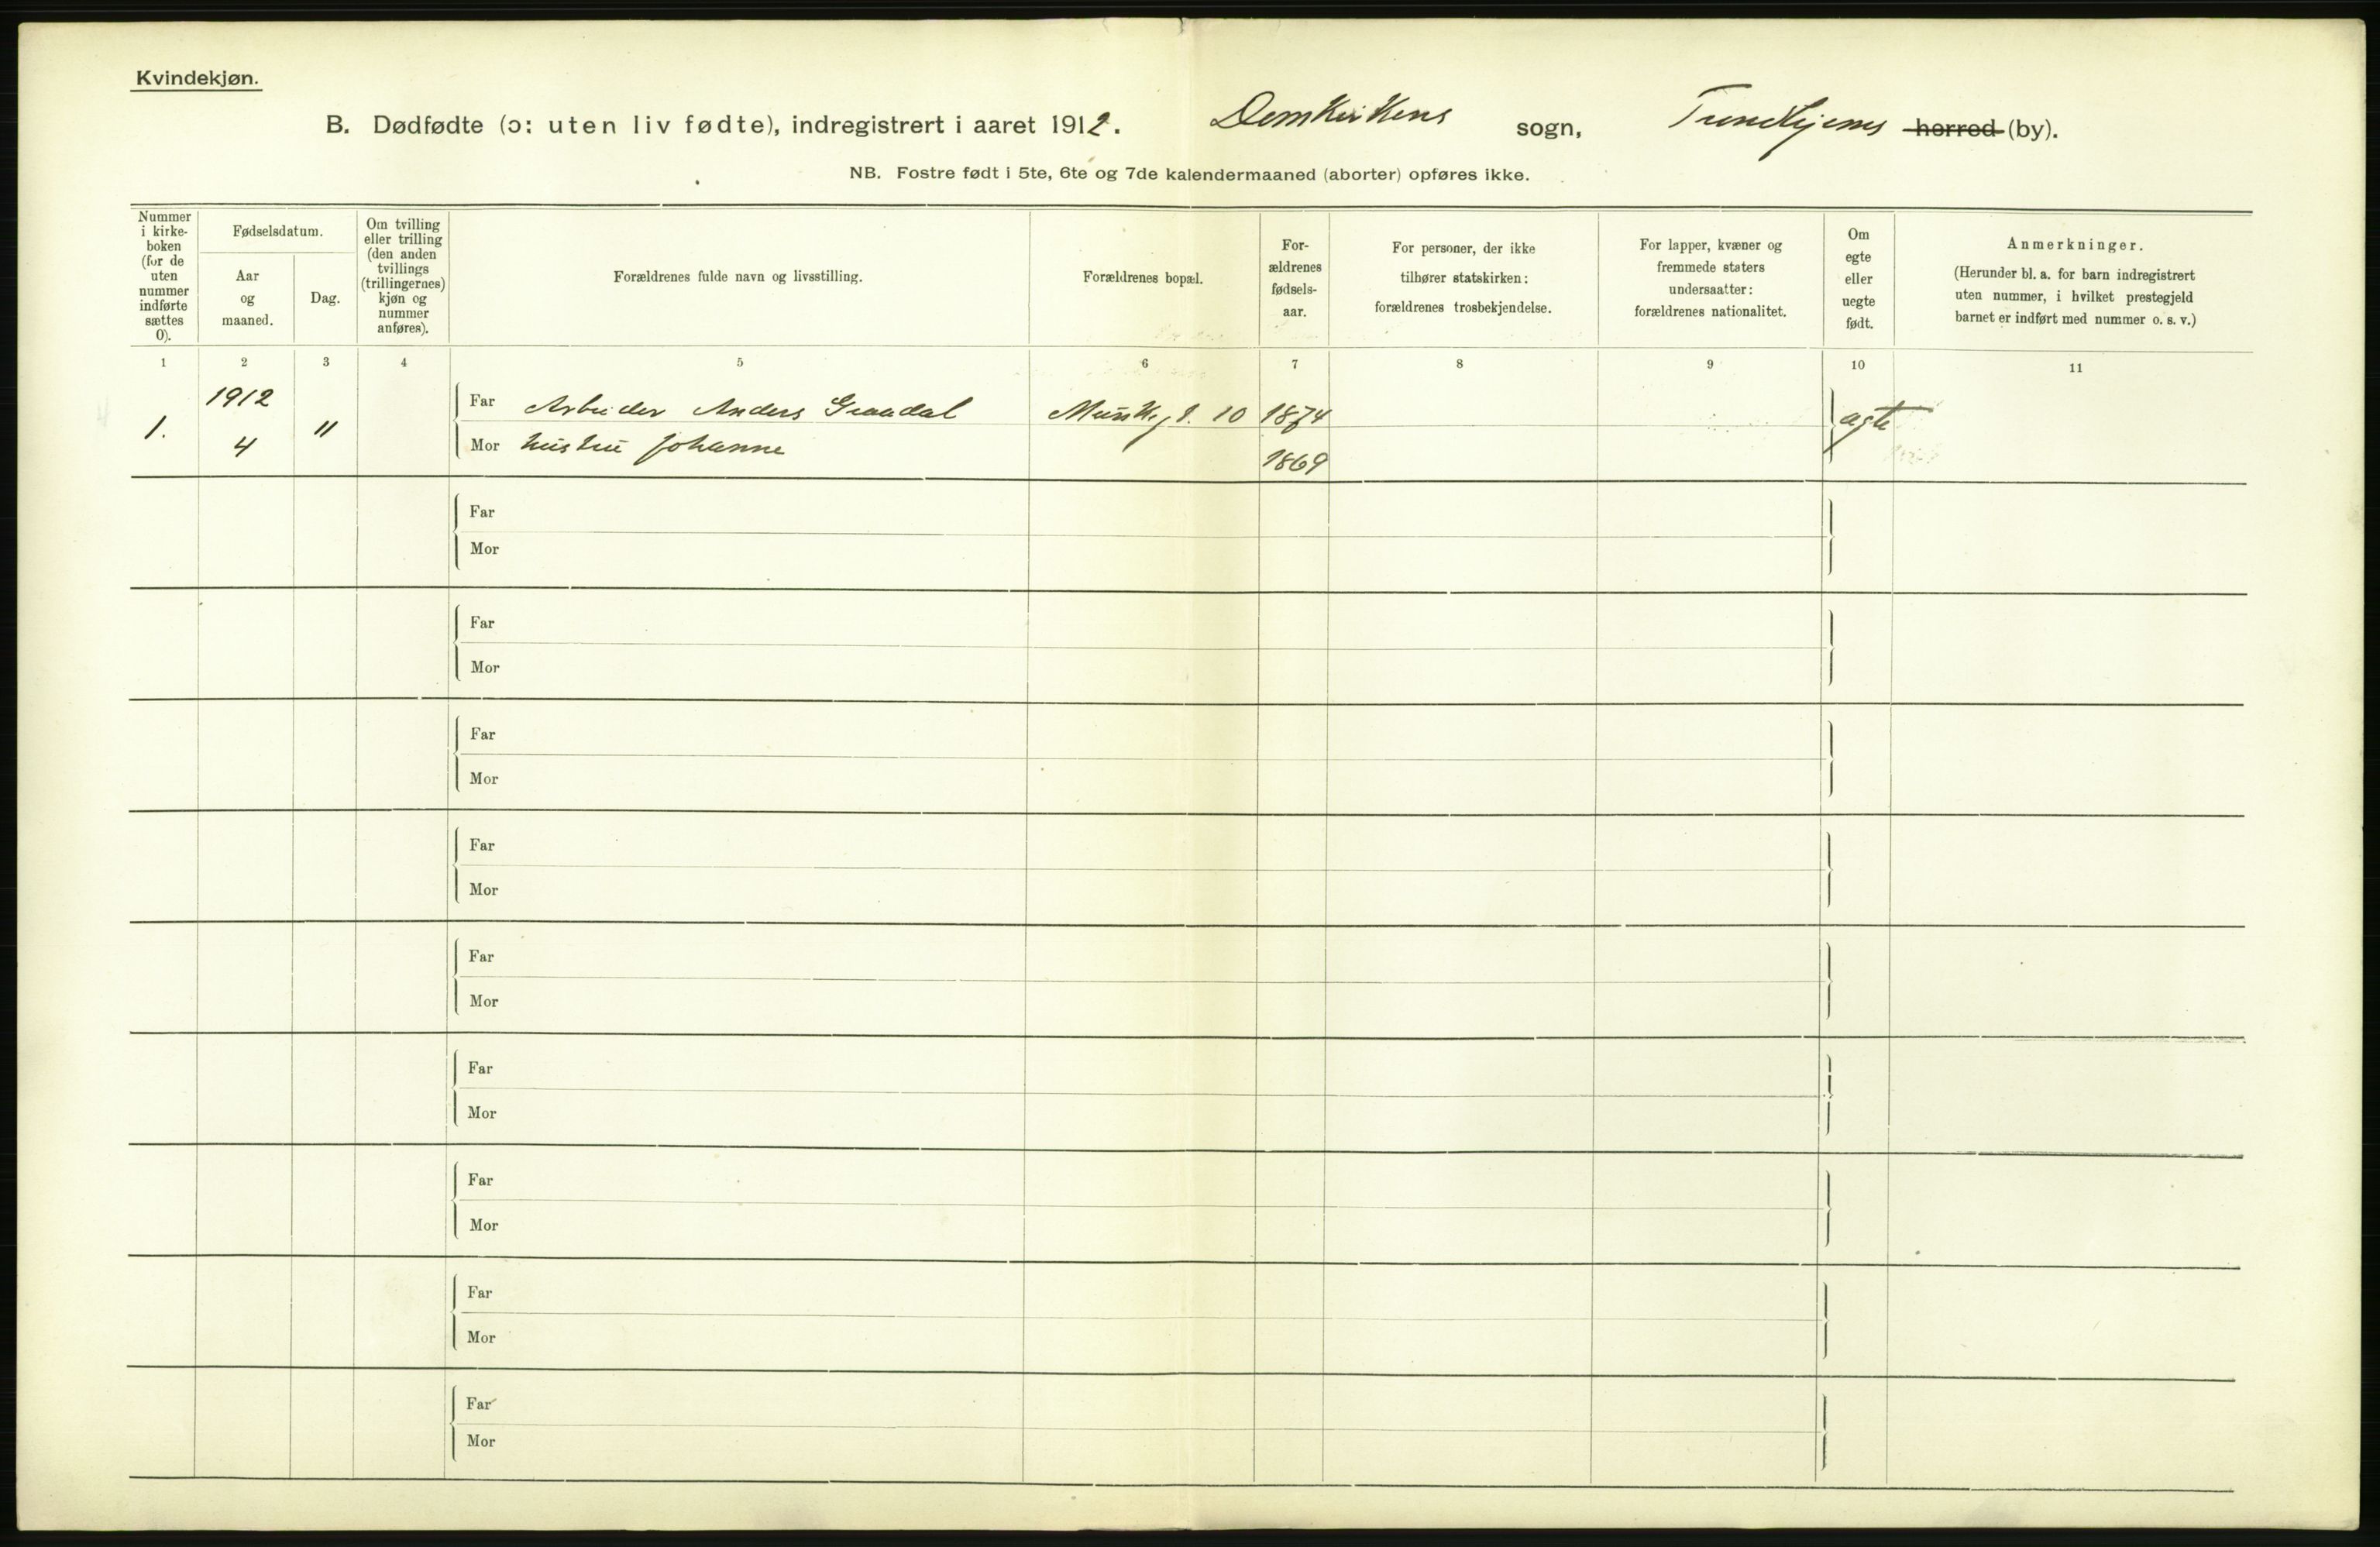 Kvindekjøn.
B. Dødfødte (ɔ: uten liv fødte), indregistrert i aaret 1912. Domkirkens sogn, Trondhjems herred (by).
NB. Fostre født i 5te, 6te og 7de kalendermaaned (aborter) opføres ikke.
Nummer
i kirke-
boken
(for de
uten
nummer
indførte
sættes
0).
Fødselsdatum.
Aar
og
maaned.
Dag.
Om tvilling
eller trilling
(den anden
tvillings
(trillingernes)
kjøn og
nummer
anføres).
Forældrenes fulde navn og livsstilling.
Forældrenes bopæl.
For-
ældrenes
fødsels-
aar.
For personer, der ikke
tilhører statskirken:
forældrenes trosbekjendelse.
For lapper, kvæner og
fremmede staters
undersaatter:
forældrenes nationalitet.
Om
egte
eller
uegte
født.
Anmerkninger.
(Herunder bl. a. for barn indregistrert
uten nummer, i hvilket prestegjeld
barnet er indført med nummer o. s. v.)
1 2 3 4 5 6 7 8 9 10 11
1. 1912 4 11
Far Arbeider Anders Graadal Munkg. 10 1874 ægte
Mor hustru Johanne 1869
Far
Mor
Far
Mor
Far
Mor
Far
Mor
Far
Mor
Far
Mor
Far
Mor
Far
Mor
Far
Mor